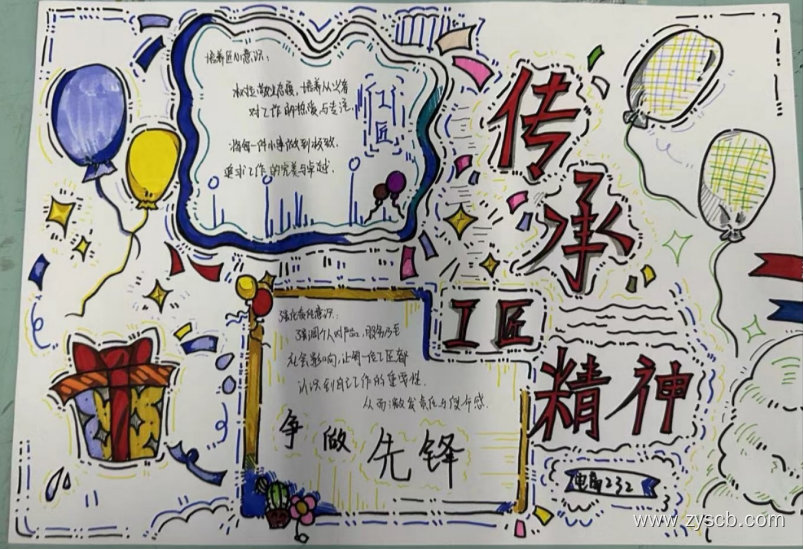 培养匠心意识：
积极敬业态度，培养从业者
对工作的热爱与专注，
将每一件小事做到极致，
追求工作的完美与卓越．
工匠
传承
工匠
精神
强化责任意识：
强调个人对产品，服务乃至
社会影响，让每一位工匠都
认识到自己工作的重要性．
从而激发责任与使命感．
争做先锋
232
www.zyscb.com